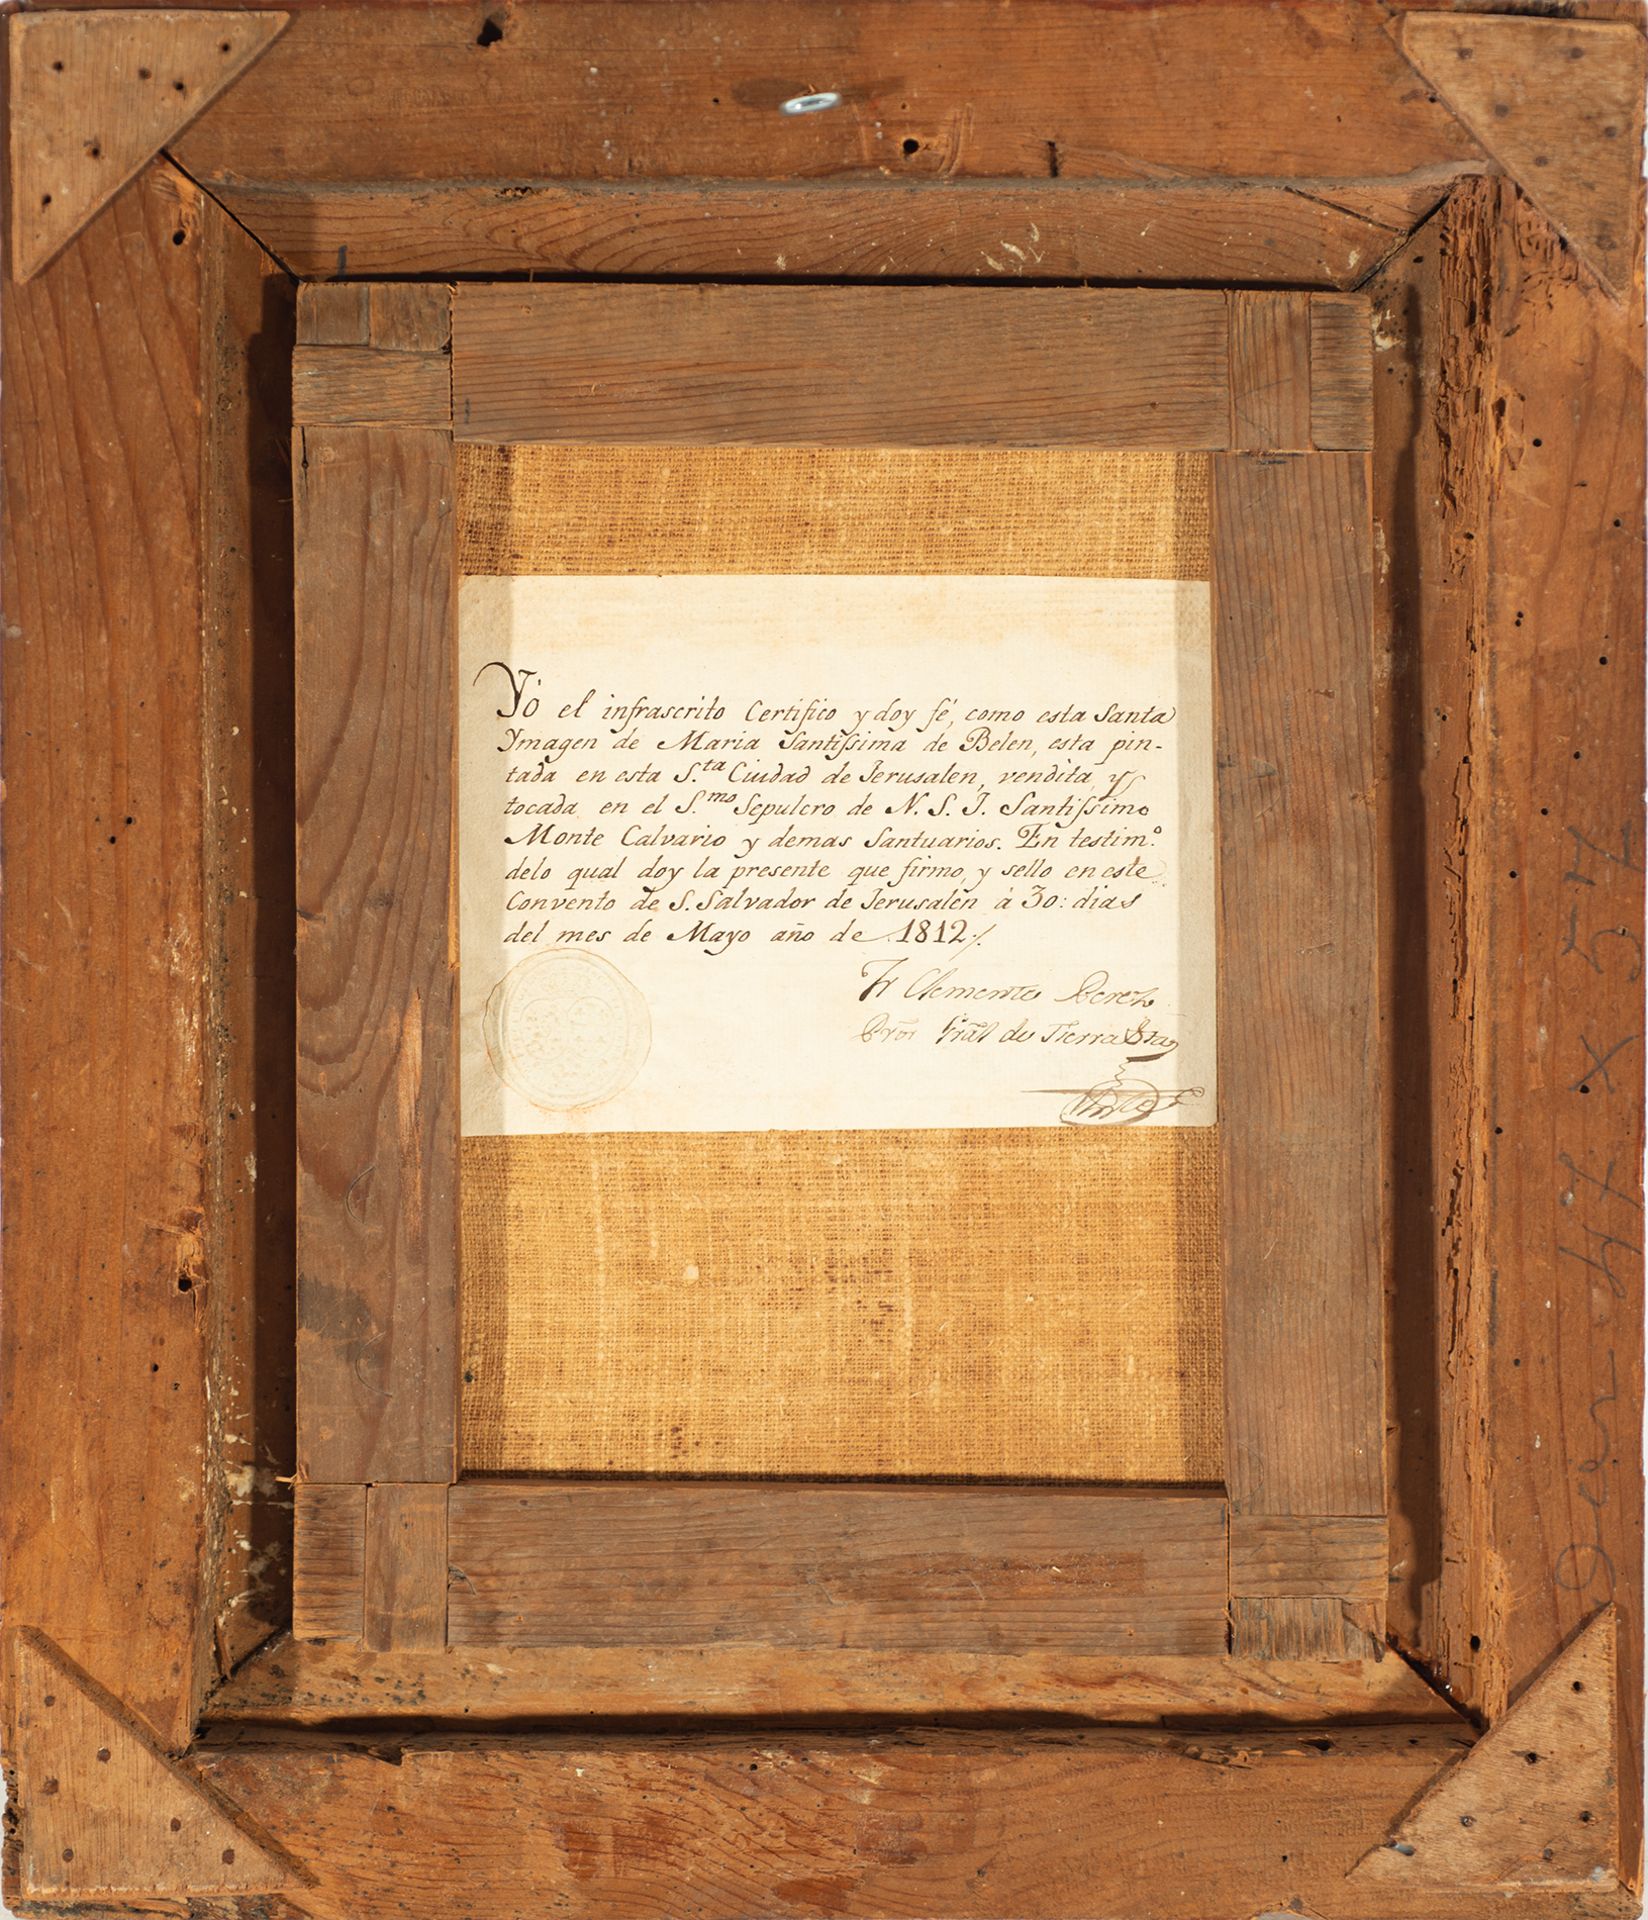 Yo el infrascrito Certifico y doy fé, como esta Santa
Ymagen de Maria Santiſsima de Belen, esta pin-
tada en esta S.ta Ciudad de Jerusalen, vendita, y
tocada en el S.mo Sepulcro de N. S. J. Santiſsimo
Monte Calvario y demas Santuarios. En testim.o
delo qual doy la presente que firmo, y sello en este
Convento de S. Salvador de Jerusalen à 30: dias
del mes de Mayo año de 1812./.
Fr Clemente Perez
Pror Gral de Tierra Sta
47 x 57